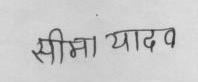 सीमा यादव